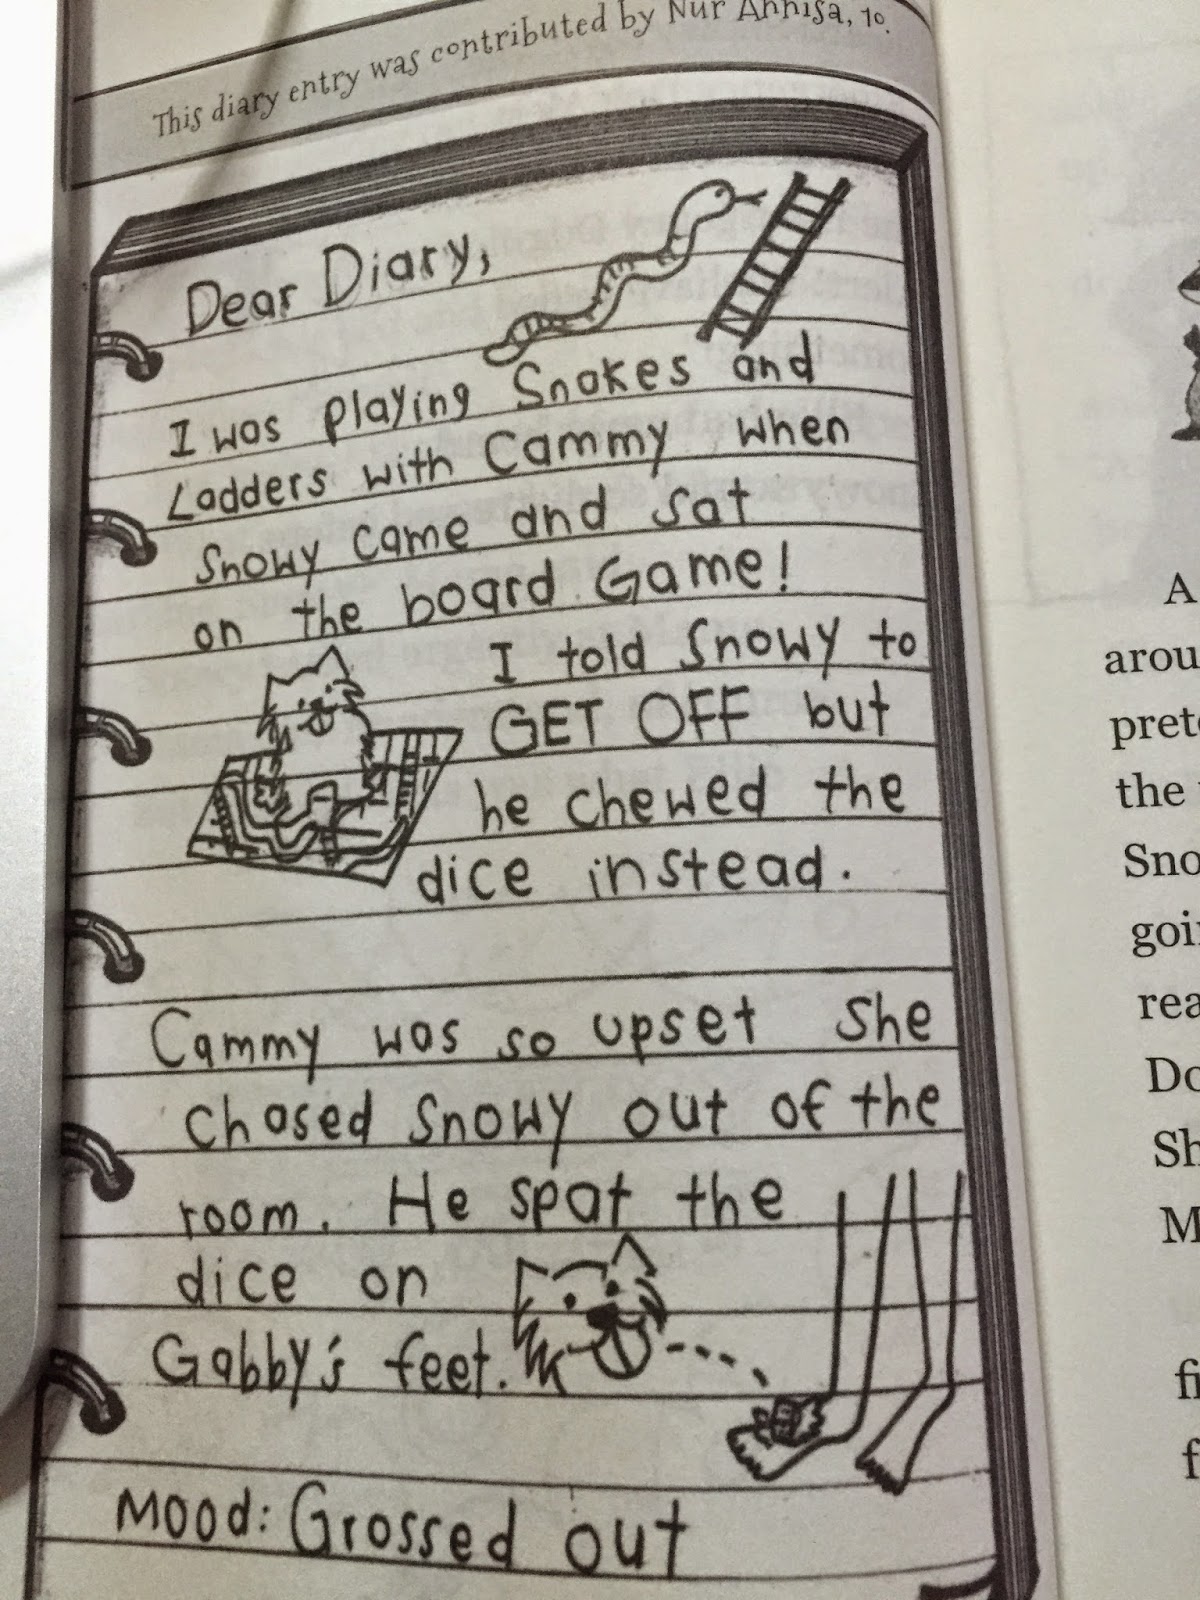 This diary entry was contributed by Nur Annisa, 10.
Dear Diary,
I was playing Snakes and
Ladders with Cammy when
Snowy came and sat
on the board Game!
I told Snowy to
GET OFF but
he chewed the
dice instead.
Cammy was so upset she
chased Snowy out of the
room. He spat the
dice on
Gabby's feet.
Mood: Grossed out
A
arou
prete
the
Sno
goi
rea
Do
Sh
M
fi
f